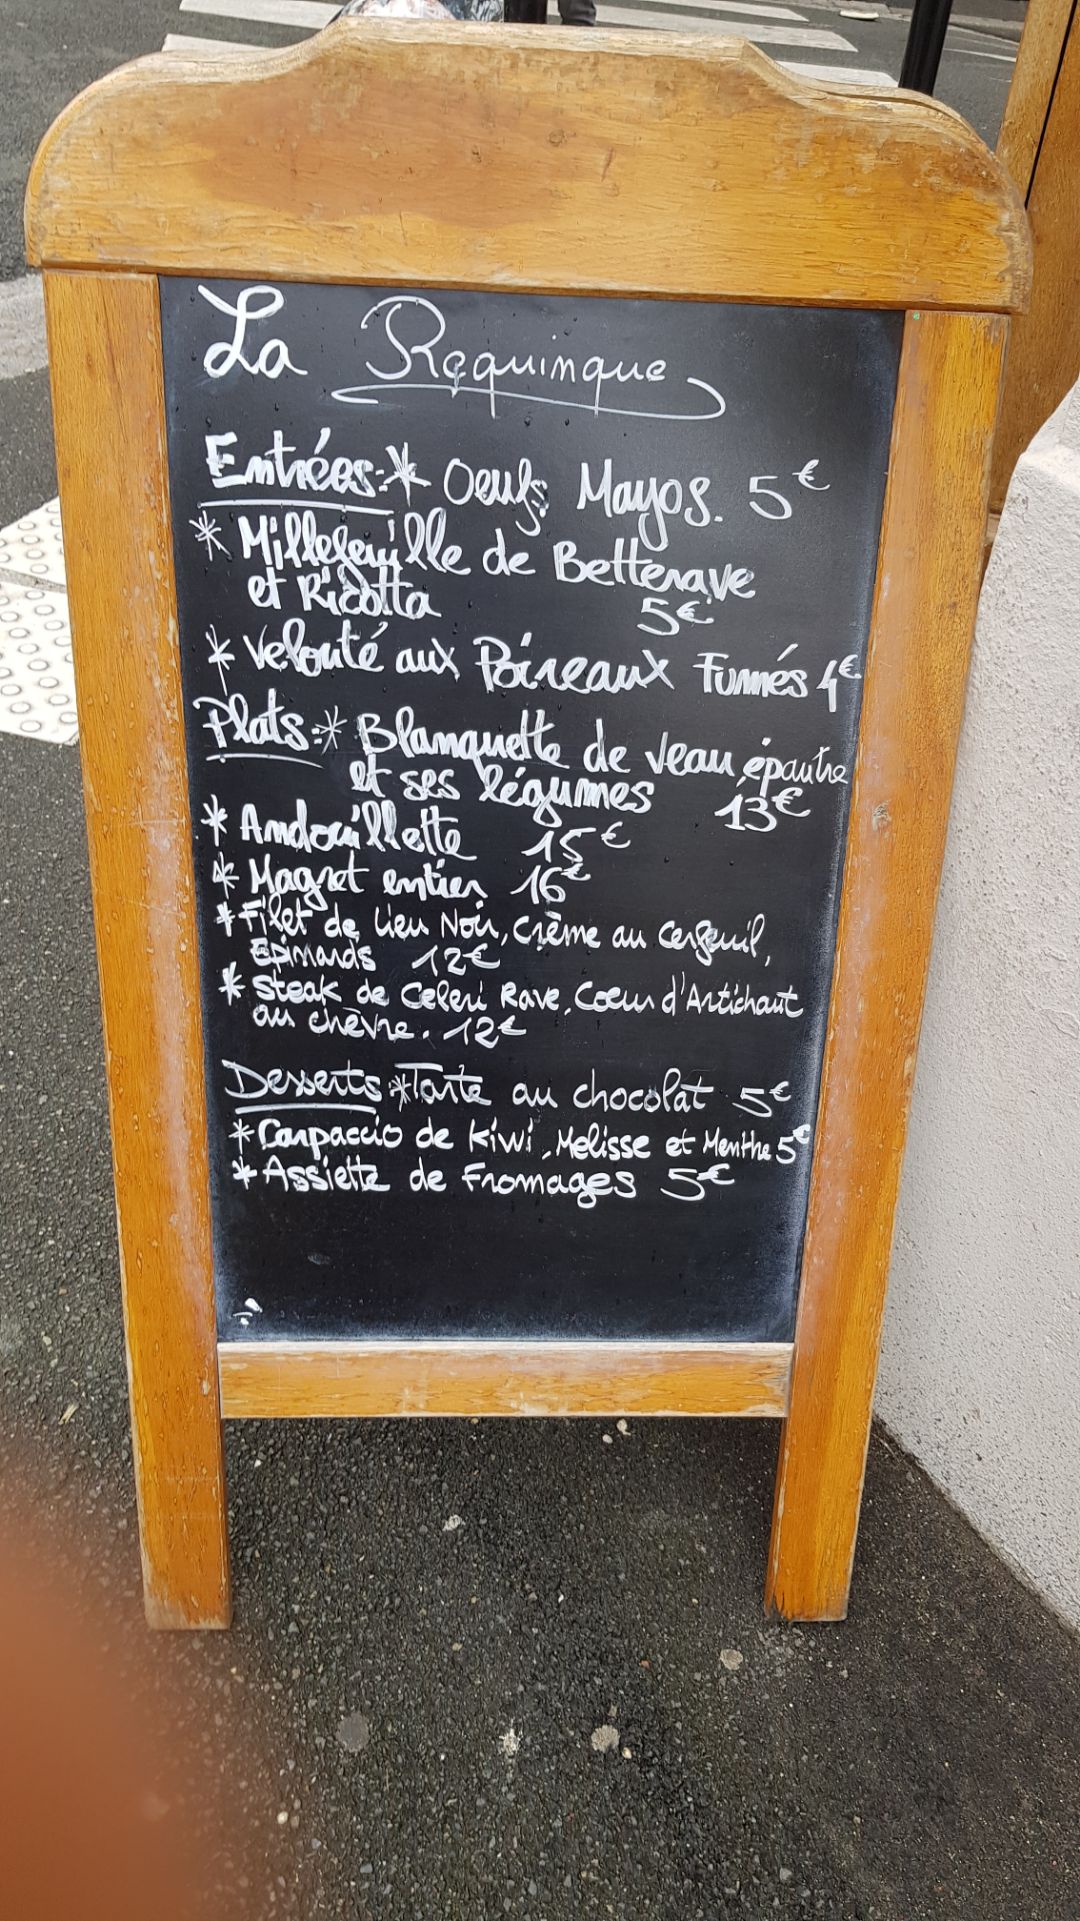 La Requinque
Entrées:* Oeufs Mayos. 5€
* Millefeuille de Betterave
et Ricotta 5€
* Velouté aux Poireaux Fumés 4€
Plats:* Blanquette de veau, épautre
et ses légumes 13€
* Andouillette 15€
* Magret entier 16€
* Filet de Lieu Noir, Crème au Cerfeuil,
Epinards 12€
* Steak de Celeri Rave, Coeur d'Artichaut
au chèvre. 12€
Desserts *Tarte au chocolat 5€
* Carpaccio de Kiwi, Melisse et Menthe 5€
* Assiette de Fromages 5€